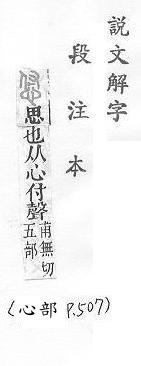 説文解字
段注本
思也从心付聲甫無切五部
(心部 P.507)